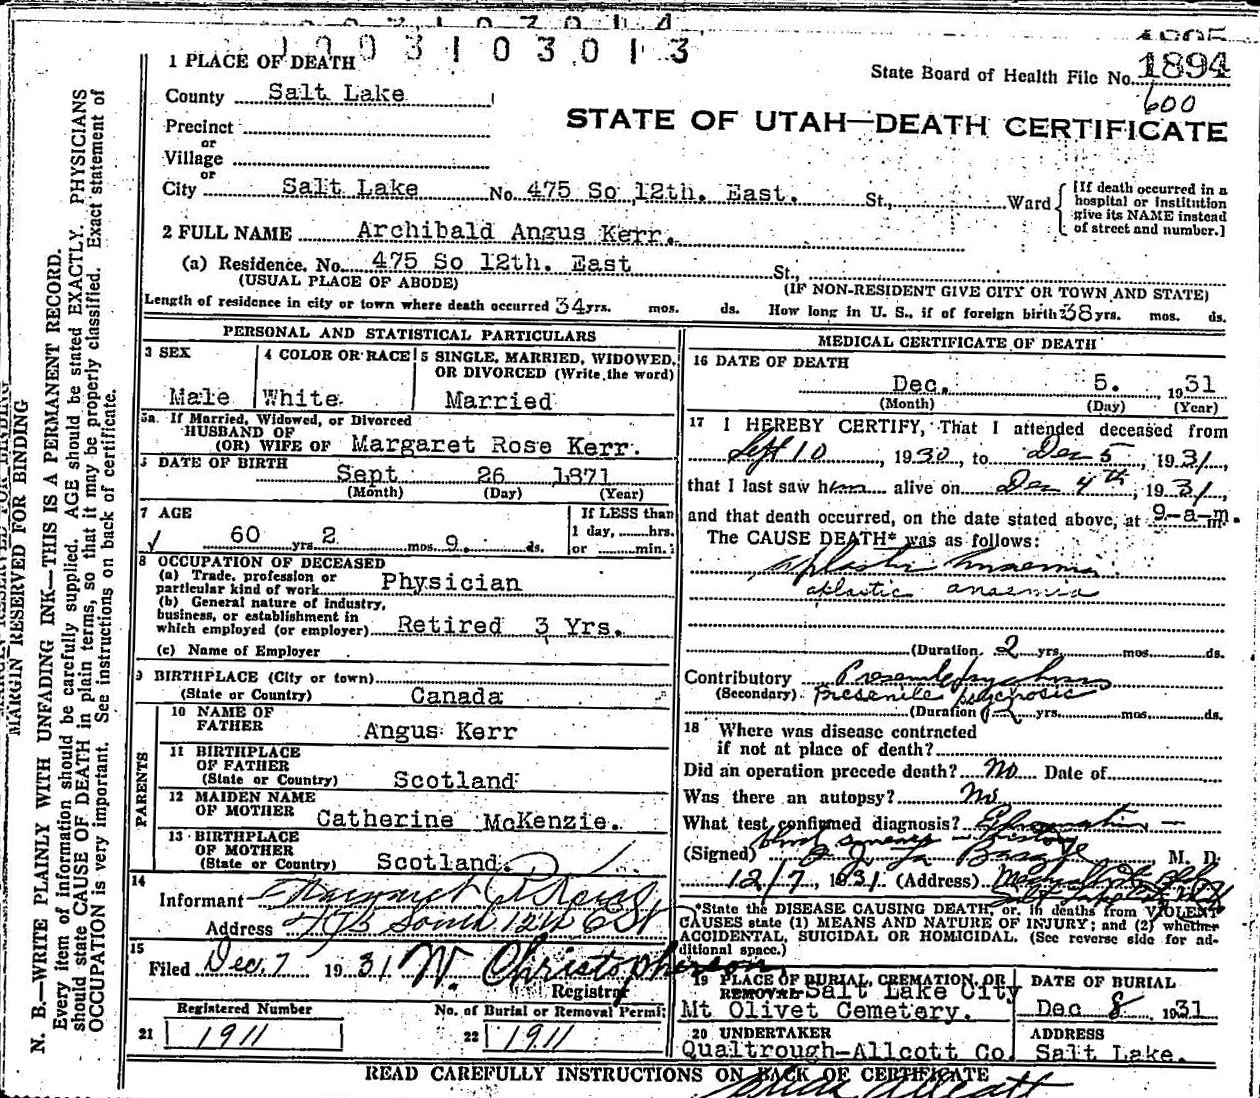 1003103013
1894
State Board of Health File No.
600
1 PLACE OF DEATH
County Salt Lake
STATE OF UTAH—DEATH CERTIFICATE
Precinct
or
Village
or
City Salt Lake No. 475 So 12th. East. St., Ward
[If death occurred in a hospital or institution give its NAME instead of street and number.]
2 FULL NAME Archibald Angus Kerr.
(a) Residence. No. 475 So 12th. East St.,
(USUAL PLACE OF ABODE) (IF NON-RESIDENT GIVE CITY OR TOWN AND STATE)
Length of residence in city or town where death occurred 34 yrs. mos. ds. How long in U. S., if of foreign birth? 38 yrs. mos. ds.
PERSONAL AND STATISTICAL PARTICULARS
3 SEX
Male
4 COLOR OR RACE
White
5 SINGLE, MARRIED, WIDOWED, OR DIVORCED (Write the word)
Married
5a If Married, Widowed, or Divorced
HUSBAND OF
(OR) WIFE OF Margaret Rose Kerr.
DATE OF BIRTH
Sept 26 1871
(Month) (Day) (Year)
7 AGE
60 yrs. 2 mos. 9 ds.
If LESS than
1 day, hrs.
or min.
8 OCCUPATION OF DECEASED
(a) Trade, profession or
particular kind of work Physician
(b) General nature of industry,
business, or establishment in
which employed (or employer) Retired 3 Yrs.
(c) Name of Employer
9 BIRTHPLACE (City or town)
(State or Country) Canada
PARENTS
10 NAME OF
FATHER Angus Kerr
11 BIRTHPLACE
OF FATHER
(State or Country) Scotland
12 MAIDEN NAME
OF MOTHER Catherine McKenzie.
13 BIRTHPLACE
OF MOTHER
(State or Country) Scotland
14
Informant Margaret R Kerr
Address 475 South 12th East
15
Filed Dec. 7 1931 W. Christopherson
Registrar
Registered Number
21 1911
No. of Burial or Removal Permit
22 1911
MEDICAL CERTIFICATE OF DEATH
16 DATE OF DEATH
Dec. 5. 1931
(Month) (Day) (Year)
17 I HEREBY CERTIFY, That I attended deceased from
Sept 10, 1930, to Dec 5, 1931,
that I last saw him alive on Dec 4th, 1931,
and that death occurred, on the date stated above, at 9-a-m.
The CAUSE DEATH* was as follows:
aplastic anaemia
aplastic anaemia
(Duration 2 yrs. mos. ds.
Contributory Presenile psychosis
(Secondary) Presenile psychosis
(Duration 2 yrs. mos. ds.
18 Where was disease contracted
if not at place of death?
Did an operation precede death? No Date of
Was there an autopsy? No
What test confirmed diagnosis?
blood smears
(Signed) M. D.
12/7, 1931 (Address)
*State the DISEASE CAUSING DEATH, or, in deaths from VIOLENT
CAUSES state (1) MEANS AND NATURE OF INJURY; and (2) whether
ACCIDENTAL, SUICIDAL OR HOMICIDAL. (See reverse side for ad-
ditional space.)
19 PLACE OF BURIAL, CREMATION, OR
REMOVAL Salt Lake City
Mt Olivet Cemetery.
DATE OF BURIAL
Dec 8 1931
20 UNDERTAKER
Qualtrough-Allcott Co.
ADDRESS
Salt Lake.
READ CAREFULLY INSTRUCTIONS ON BACK OF CERTIFICATE
MARGIN RESERVED FOR BINDING
N. B.—WRITE PLAINLY WITH UNFADING INK—THIS IS A PERMANENT RECORD.
Every item of information should be carefully supplied. AGE should be stated EXACTLY. PHYSICIANS
should state CAUSE OF DEATH in plain terms, so that it may be properly classified. Exact statement of
OCCUPATION is very important. See instructions on back of certificate.